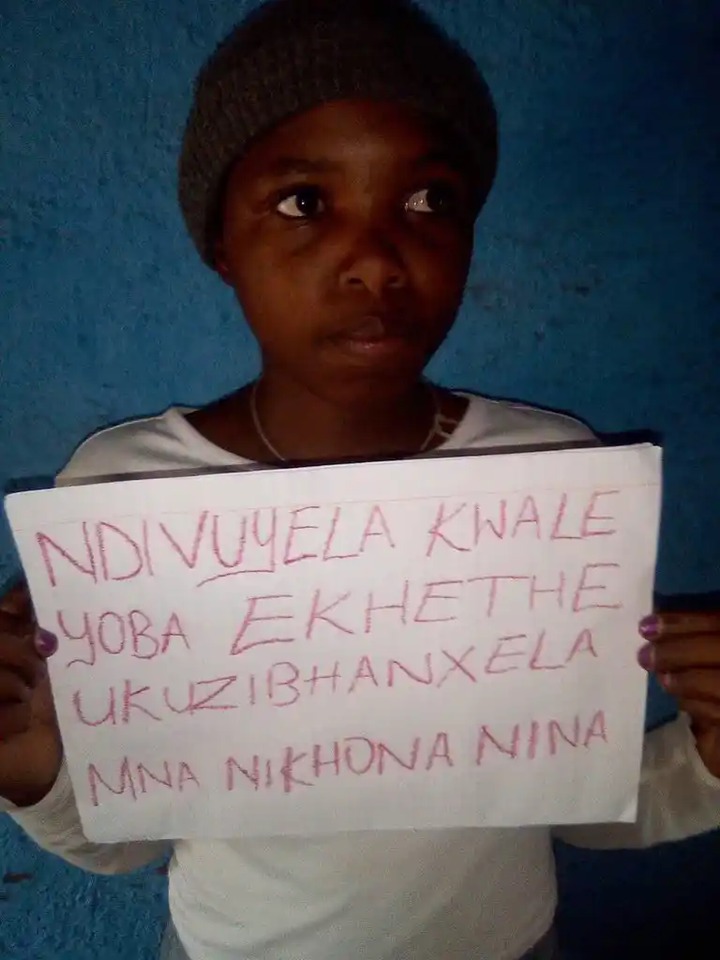 NDIVUYELA KWALE
YOBA EKHETHE
UKUZIBHANXELA
MNA NIKHONA NINA